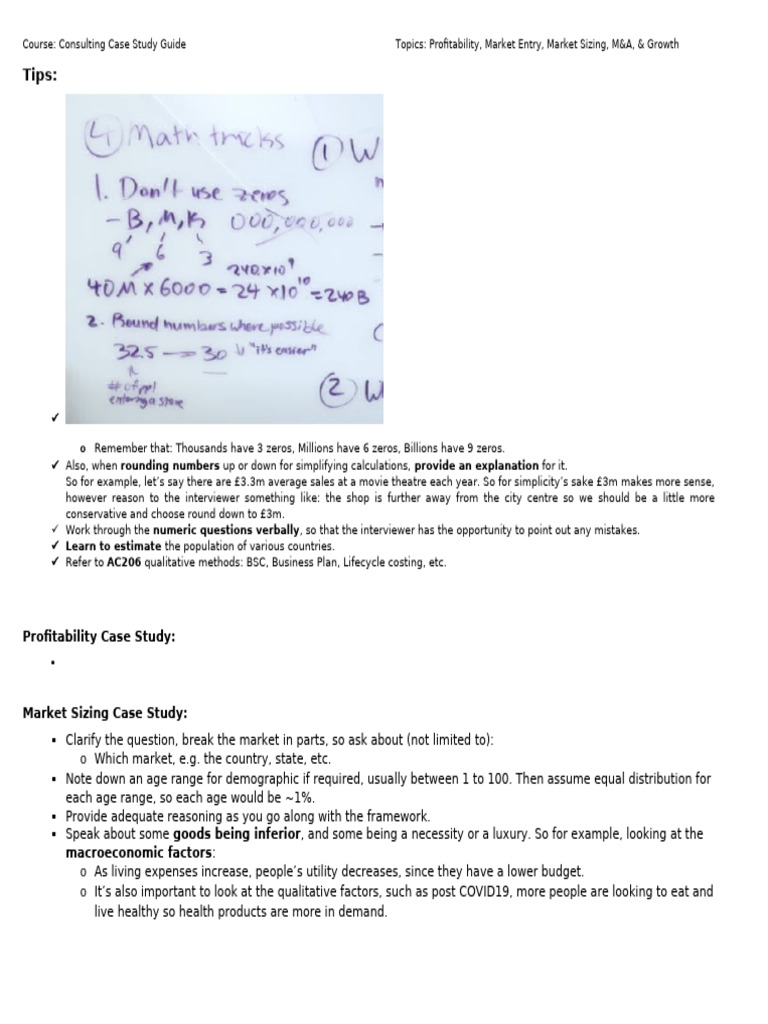 Course: Consulting Case Study Guide
Topics: Profitability, Market Entry, Market Sizing, M&A, & Growth
Tips:
④ Math tricks
① W
1. Don't use zeros
- B, M, K 000,000,000
9 6 3
240x10⁹
40M x 6000 = 24 x10¹⁰ = 240B
2. Round numbers where possible
32.5 → 30 ↓ "it's easier"
# of ppl
entering a store
② W
✓
o Remember that: Thousands have 3 zeros, Millions have 6 zeros, Billions have 9 zeros.
✓ Also, when rounding numbers up or down for simplifying calculations, provide an explanation for it.
So for example, let's say there are £3.3m average sales at a movie theatre each year. So for simplicity's sake £3m makes more sense,
however reason to the interviewer something like: the shop is further away from the city centre so we should be a little more
conservative and choose round down to £3m.
✓ Work through the numeric questions verbally, so that the interviewer has the opportunity to point out any mistakes.
✓ Learn to estimate the population of various countries.
✓ Refer to AC206 qualitative methods: BSC, Business Plan, Lifecycle costing, etc.
Profitability Case Study:
▪
Market Sizing Case Study:
▪ Clarify the question, break the market in parts, so ask about (not limited to):
o Which market, e.g. the country, state, etc.
▪ Note down an age range for demographic if required, usually between 1 to 100. Then assume equal distribution for
each age range, so each age would be ~1%.
▪ Provide adequate reasoning as you go along with the framework.
▪ Speak about some goods being inferior, and some being a necessity or a luxury. So for example, looking at the
macroeconomic factors:
o As living expenses increase, people's utility decreases, since they have a lower budget.
o It's also important to look at the qualitative factors, such as post COVID19, more people are looking to eat and
live healthy so health products are more in demand.